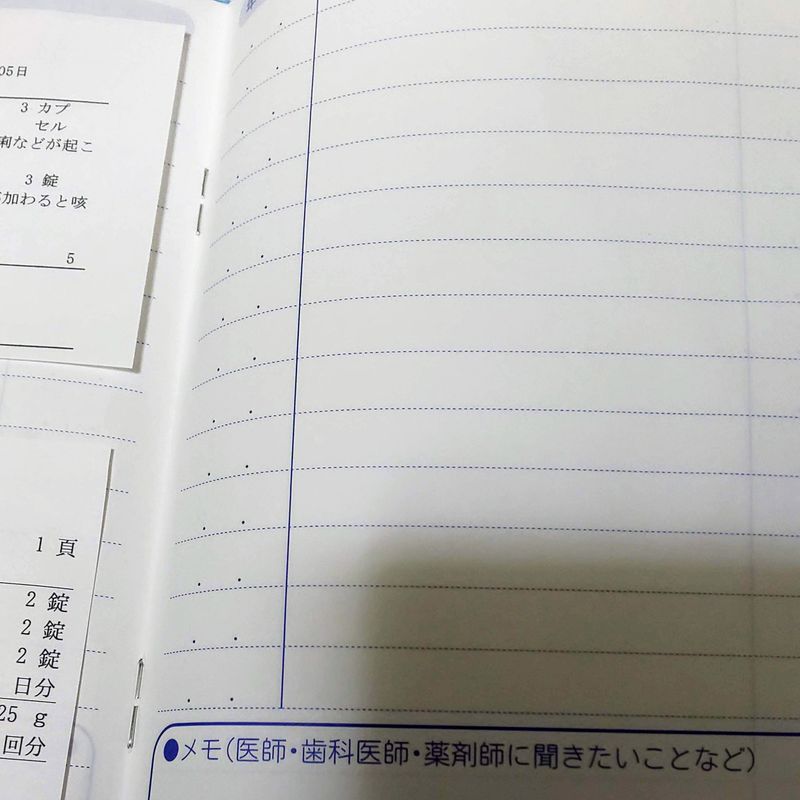 05日
3 カプ
セル
痢などが起こ
3 錠
加わると咳
5
1 頁
2 錠
2 錠
2 錠
日分
25 g
回分
●メモ(医師・歯科医師・薬剤師に聞きたいことなど)